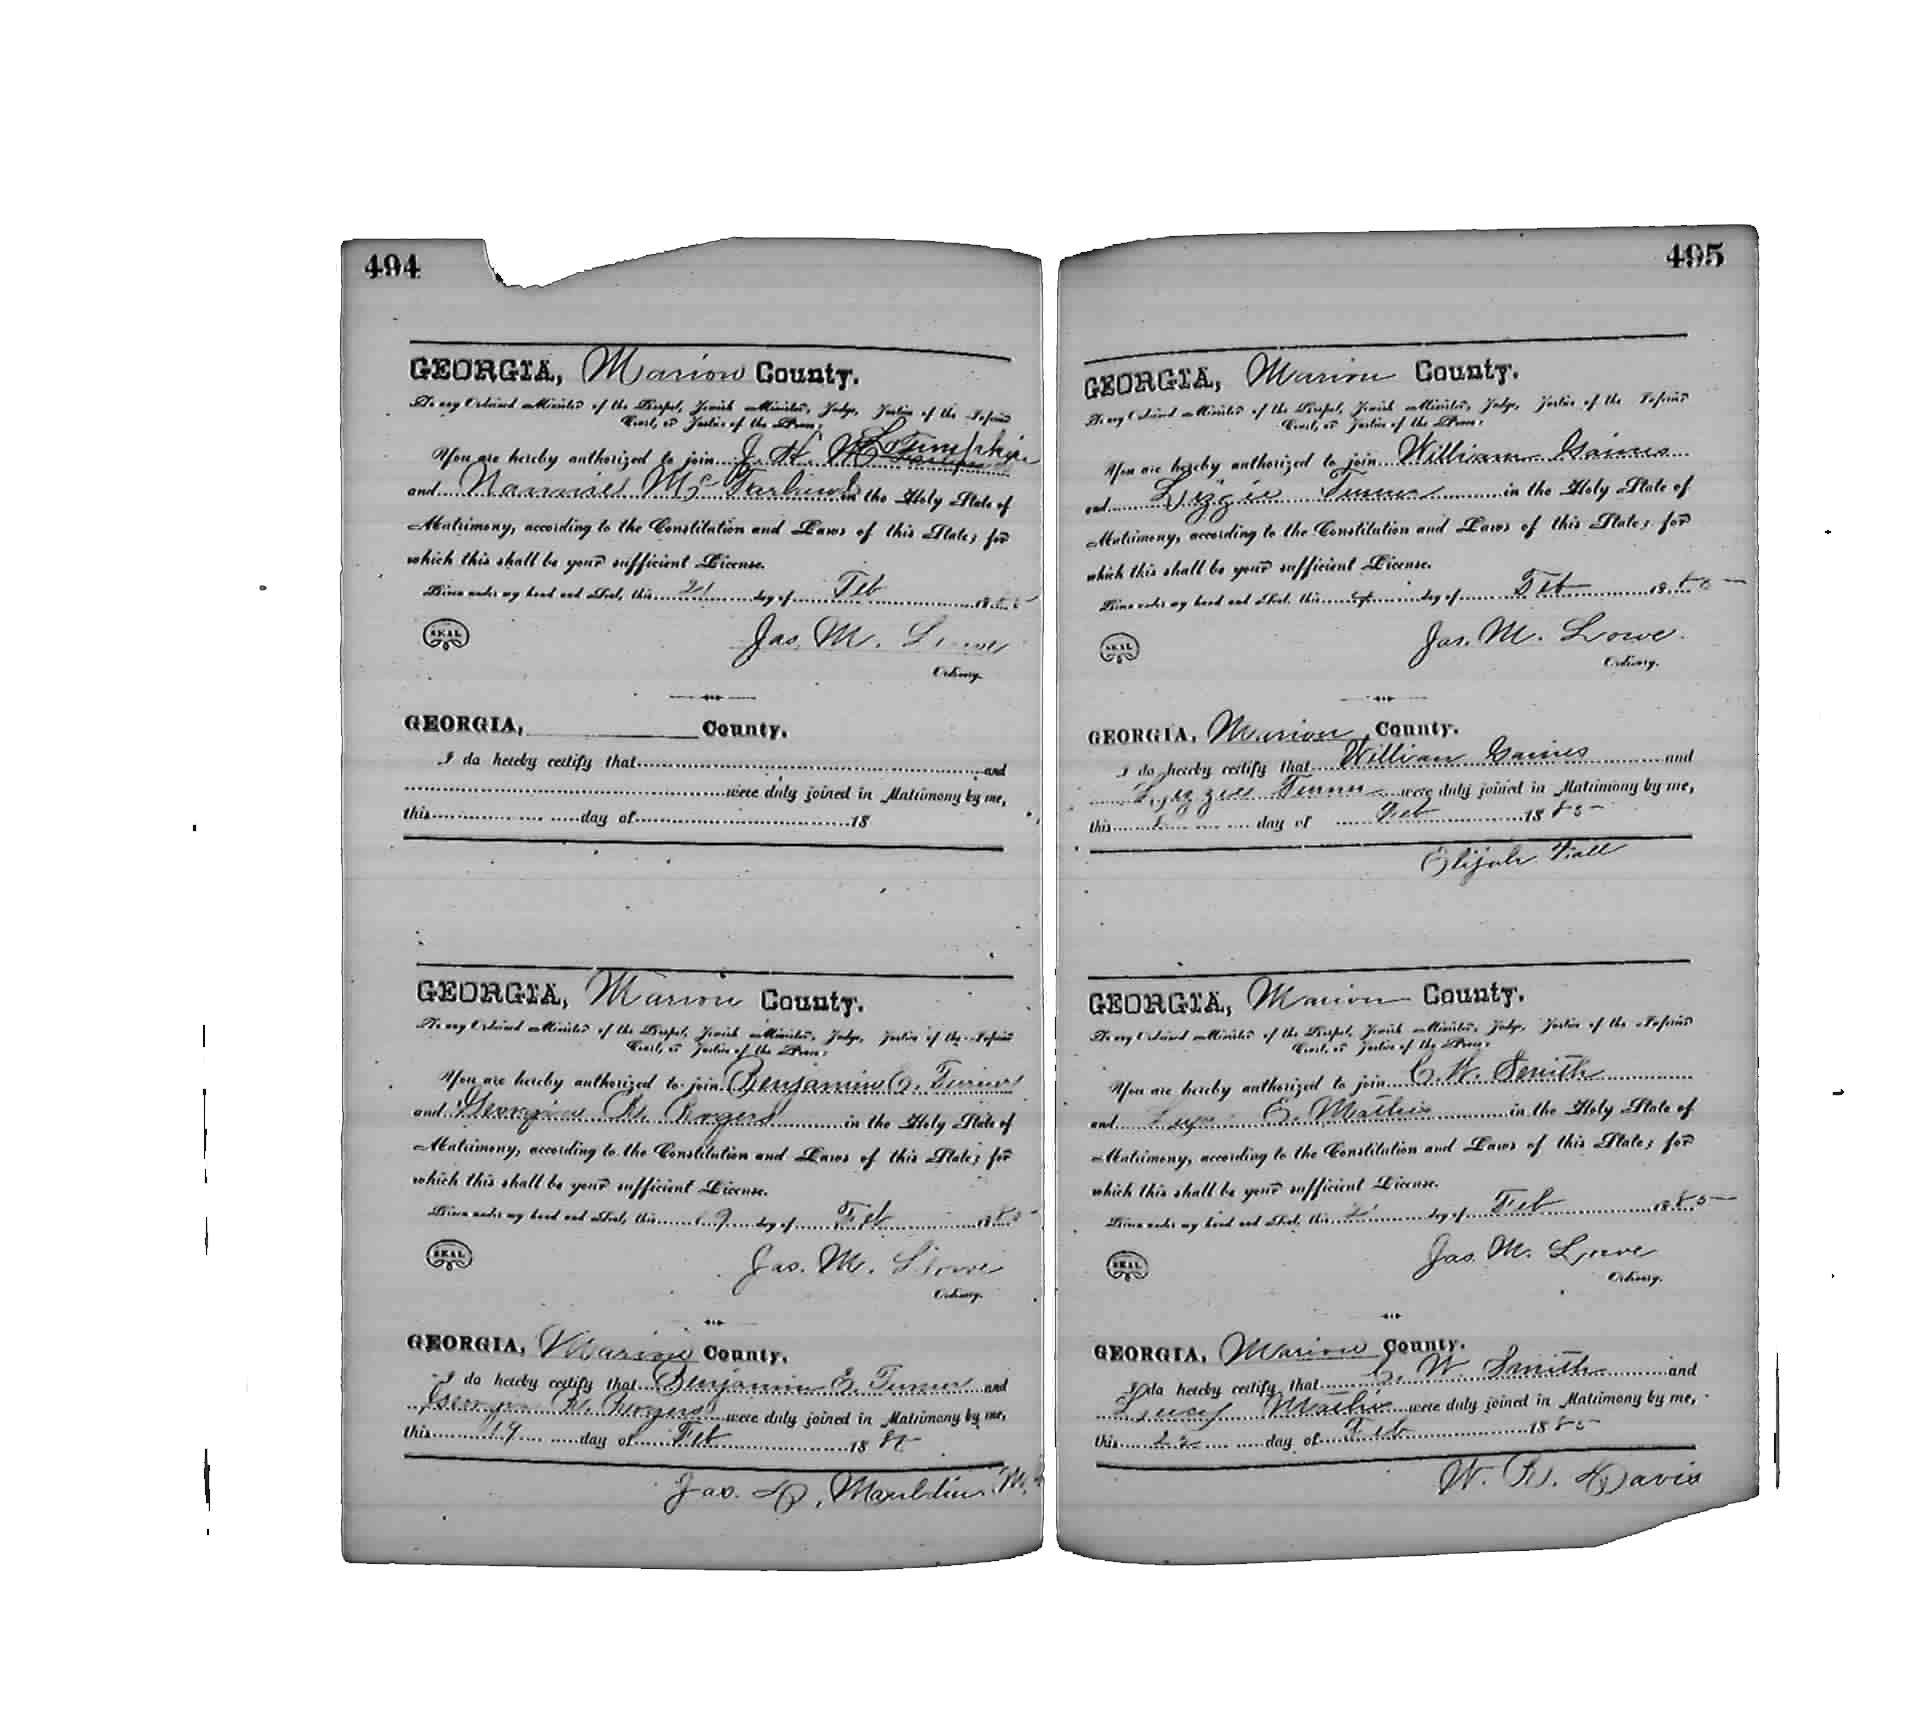 494
GEORGIA, Marion County.
To any Ordained Minister of the Gospel, Jewish Minister, Judge, Justice of the Inferior
Court, or Justice of the Peace:
You are hereby authorized to join J. H. Lumpkin
and Nannie in the Holy State of
Matrimony, according to the Constitution and Laws of this State; for
which this shall be your sufficient License.
Given under my hand and Seal, this 21 day of Feb 1885
SEAL
Jas. M. Lowe
Ordinary.
GEORGIA, County.
I do hereby certify that and
were duly joined in Matrimony by me,
this day of 18
GEORGIA, Marion County.
To any Ordained Minister of the Gospel, Jewish Minister, Judge, Justice of the Inferior
Court, or Justice of the Peace:
You are hereby authorized to join Benjamin E. Turner
and Georgia R. Rogers in the Holy State of
Matrimony, according to the Constitution and Laws of this State; for
which this shall be your sufficient License.
Given under my hand and Seal, this 19 day of Feb 1885
SEAL
Jas. M. Lowe
Ordinary.
GEORGIA, Marion County.
I do hereby certify that Benjamin E. Turner and
Georgia R. Rogers were duly joined in Matrimony by me,
this 19 day of Feb 1885
Jas. D. M.G.
495
GEORGIA, Marion County.
To any Ordained Minister of the Gospel, Jewish Minister, Judge, Justice of the Inferior
Court, or Justice of the Peace:
You are hereby authorized to join William Gaines
and Lizzie Turner in the Holy State of
Matrimony, according to the Constitution and Laws of this State; for
which this shall be your sufficient License.
Given under my hand and Seal, this day of Feb 1885
SEAL
Jas. M. Lowe.
Ordinary.
GEORGIA, Marion County.
I do hereby certify that William Gaines and
Lizzie Turner were duly joined in Matrimony by me,
this day of Feb 1885
Elijah
GEORGIA, Marion County.
To any Ordained Minister of the Gospel, Jewish Minister, Judge, Justice of the Inferior
Court, or Justice of the Peace:
You are hereby authorized to join C. W. Smith
and E. Mathis in the Holy State of
Matrimony, according to the Constitution and Laws of this State; for
which this shall be your sufficient License.
Given under my hand and Seal, this day of Feb 1885
SEAL
Jas. M. Lowe
Ordinary.
GEORGIA, Marion County.
I do hereby certify that C. W. Smith and
Lucy Mathis were duly joined in Matrimony by me,
this 22 day of Feb 1885
W. R. Davis